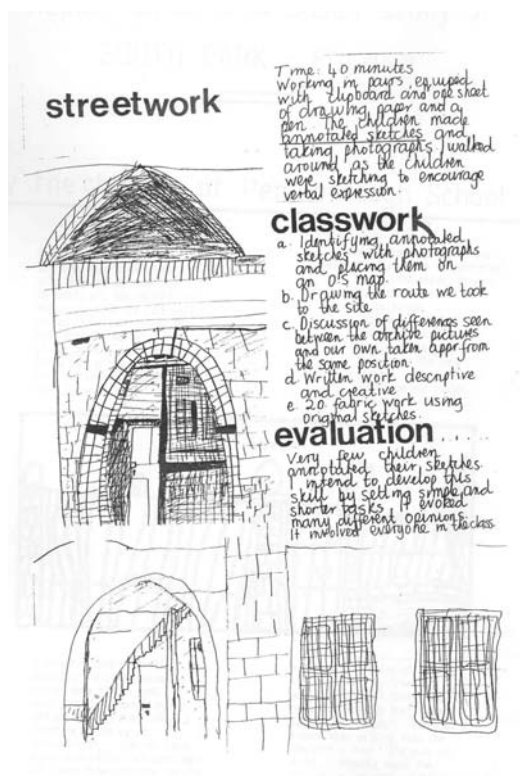 streetwork
Time: 40 minutes
Working in pairs, equiped
with clipboard and one sheet
of drawing paper and a
pen. The children made
annotated sketches and
taking photographs. I walked
around as the children
were sketching to encourage
verbal expression.
classwork
a. Identifying annotated
sketches with photographs
and placing them on
an O.S map.
b. Drawing the route we took
to the site
c. Discussion of differences seen
between the archive pictures
and our own taken appr. from
the same position.
d Written work descriptive
and creative
e. 2D fabric work using
original sketches.
evaluation.....
Very few children
annotated their sketches.
I intend to develop this
skill by setting simple and
shorter tasks. It evoked
many different opinions.
It involved everyone in the class